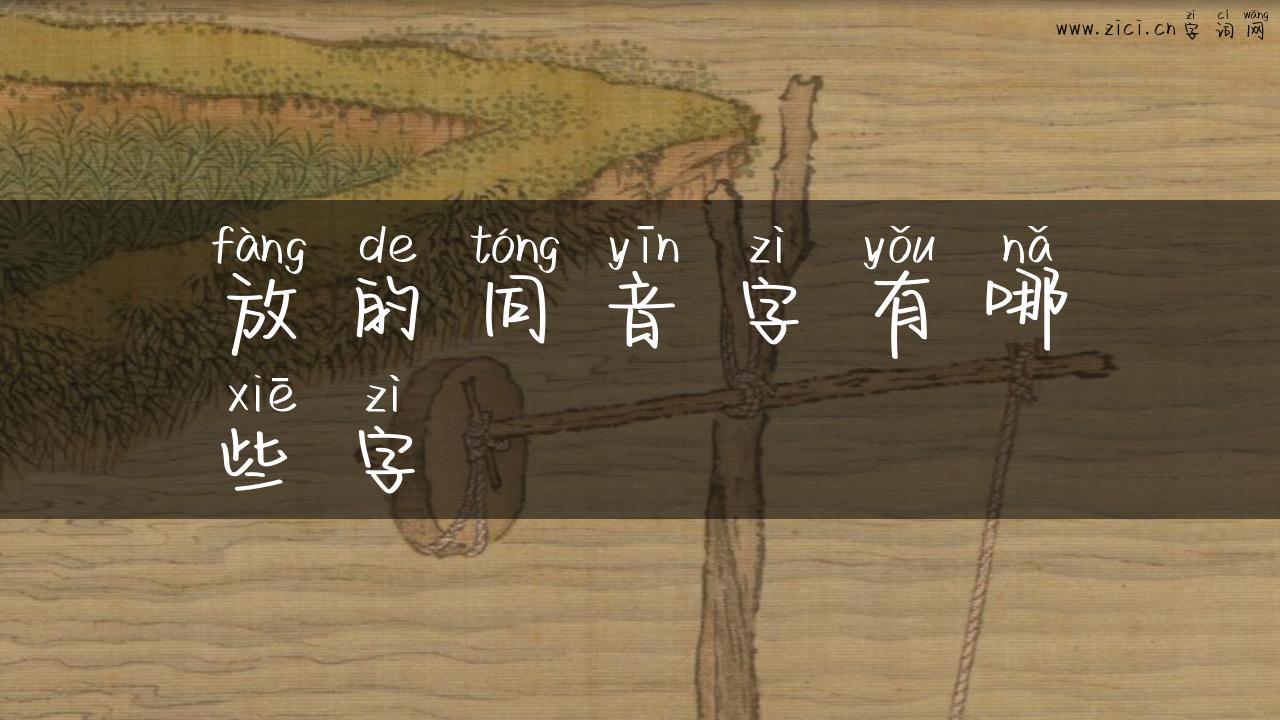 zì cí wǎng
www.zici.cn 字 词 网
fàng de tóng yīn zì yǒu nǎ
放 的 同 音 字 有 哪
xiē zì
些 字